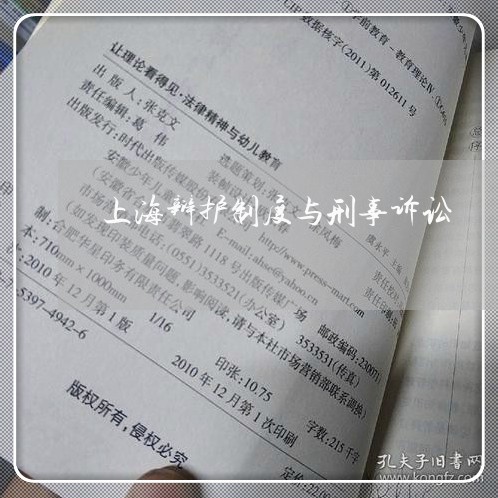 ①学前教育-教育理论Ⅳ.①G610
CIP数据核字(2011)第012611号
让理论看得见·法律精神与幼儿教育
出版人:张克文
选题策划:张
责任编辑:葛 伟
装帧设计
出版发行:时代出版传媒股份
安徽少年儿童
E-mail:ahse@yahoo.cn
http://www.press-mart.com
(安徽省
翡翠路1118号出版传媒广场
邮政编码:230071)
市场营销部电话:(0551)3533521(办公室) 3533531(传真)
(如发现印装质量问题,影响阅读,请与本社市场营销部联系调换)
制:合肥华星印务有限责任公司
本:710mm×1000mm 1/16
印张:10.75
字数:215千字
次:2010年12月第1版
2010年12月第1次印刷
7-5397-4942-6
定价:22.00
版权所有,侵权必究
上海辩护制度与刑事诉讼
孔夫子旧书网
www.kongfz.com